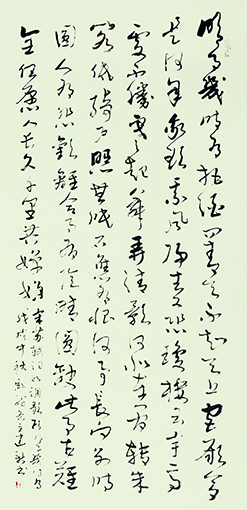 明月幾時有把酒問青天不知天上宮闕今夕
是何年我欲乘風歸去又恐瓊樓玉宇高
處不勝寒起舞弄清影何似在人間轉朱
閣低綺戶照無眠不應有恨何事長向別時
圓人有悲歡離合月有陰晴圓缺此事古難
全但願人長久千里共嬋娟 宋蘇軾詞水調歌頭
戊戌中秋